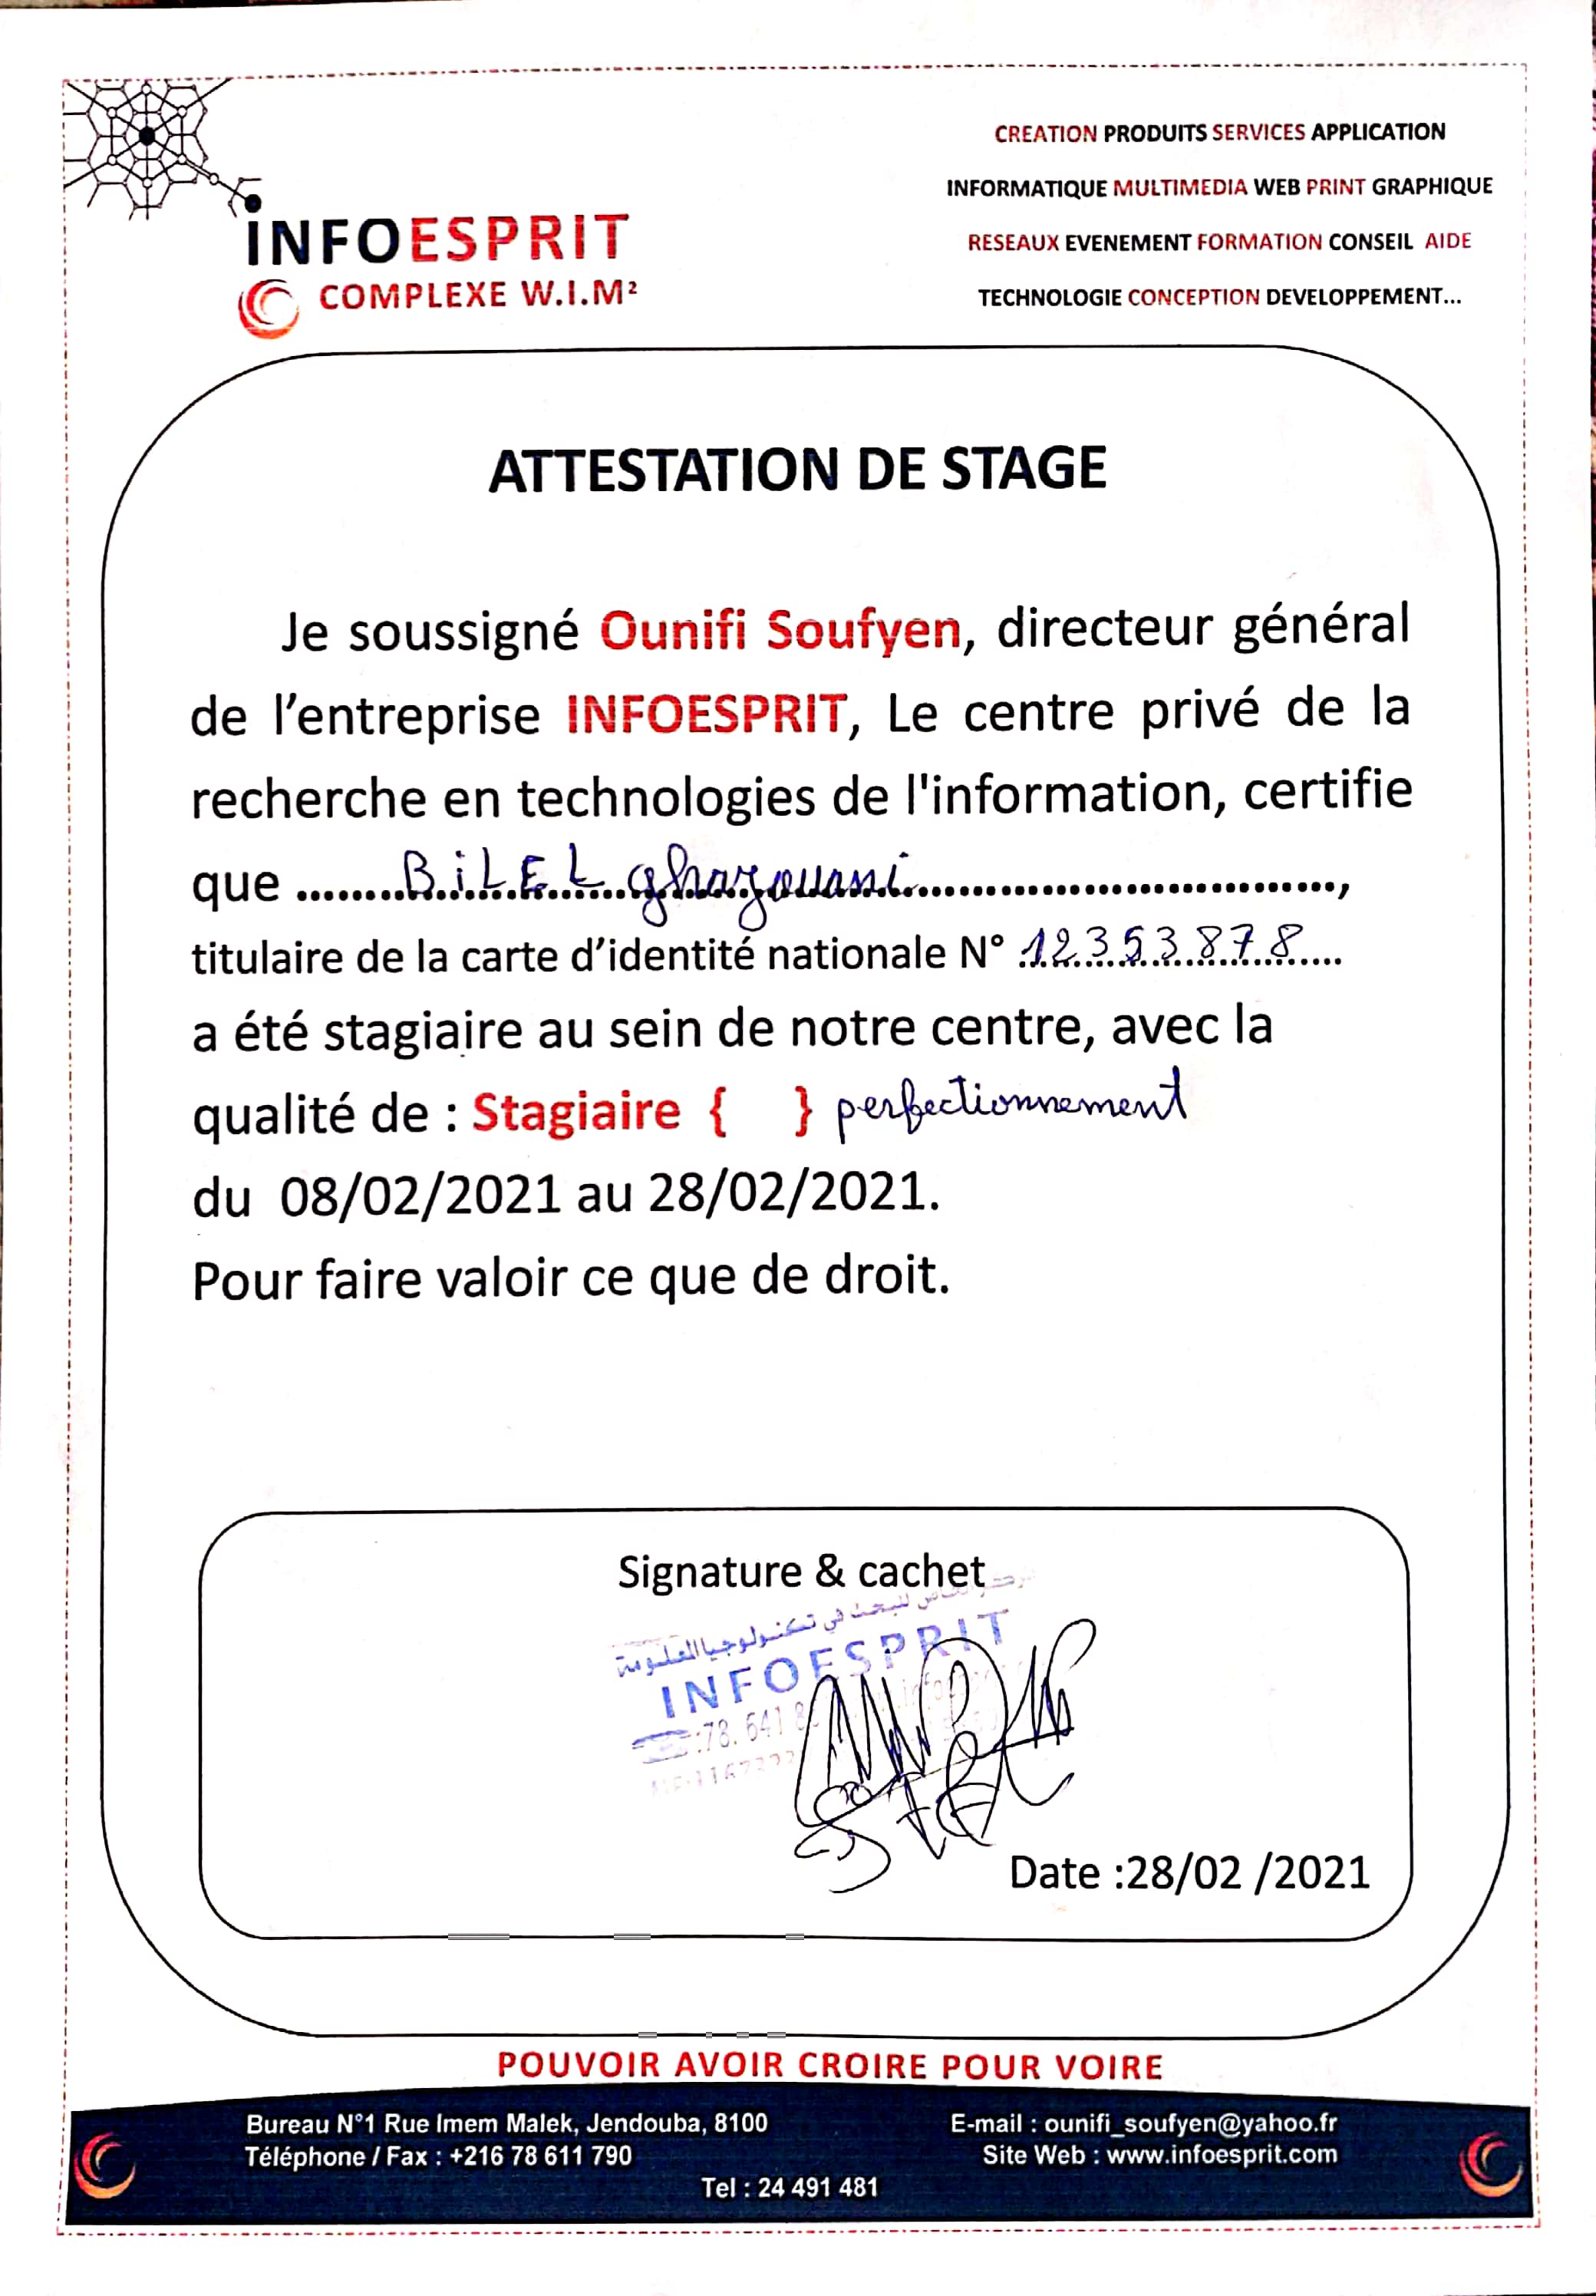 INFOESPRIT
COMPLEXE W.I.M²
CREATION PRODUITS SERVICES APPLICATION
INFORMATIQUE MULTIMEDIA WEB PRINT GRAPHIQUE
RESEAUX EVENEMENT FORMATION CONSEIL AIDE
TECHNOLOGIE CONCEPTION DEVELOPPEMENT...
ATTESTATION DE STAGE
Je soussigné Ounifi Soufyen, directeur général
de l'entreprise INFOESPRIT, Le centre privé de la
recherche en technologies de l'information, certifie
que ........BiLEL ghazouani...............................,
titulaire de la carte d'identité nationale N° 12353878......
a été stagiaire au sein de notre centre, avec la
qualité de : Stagiaire { } perfectionnement
du 08/02/2021 au 28/02/2021.
Pour faire valoir ce que de droit.
Signature & cachet
للبحث في تكنولوجيا المعلومة
INFOESPRIT
78. 641
Date :28/02 /2021
POUVOIR AVOIR CROIRE POUR VOIRE
Bureau N°1 Rue Imem Malek, Jendouba, 8100
Téléphone / Fax : +216 78 611 790
E-mail : ounifi_soufyen@yahoo.fr
Site Web : www.infoesprit.com
Tel : 24 491 481